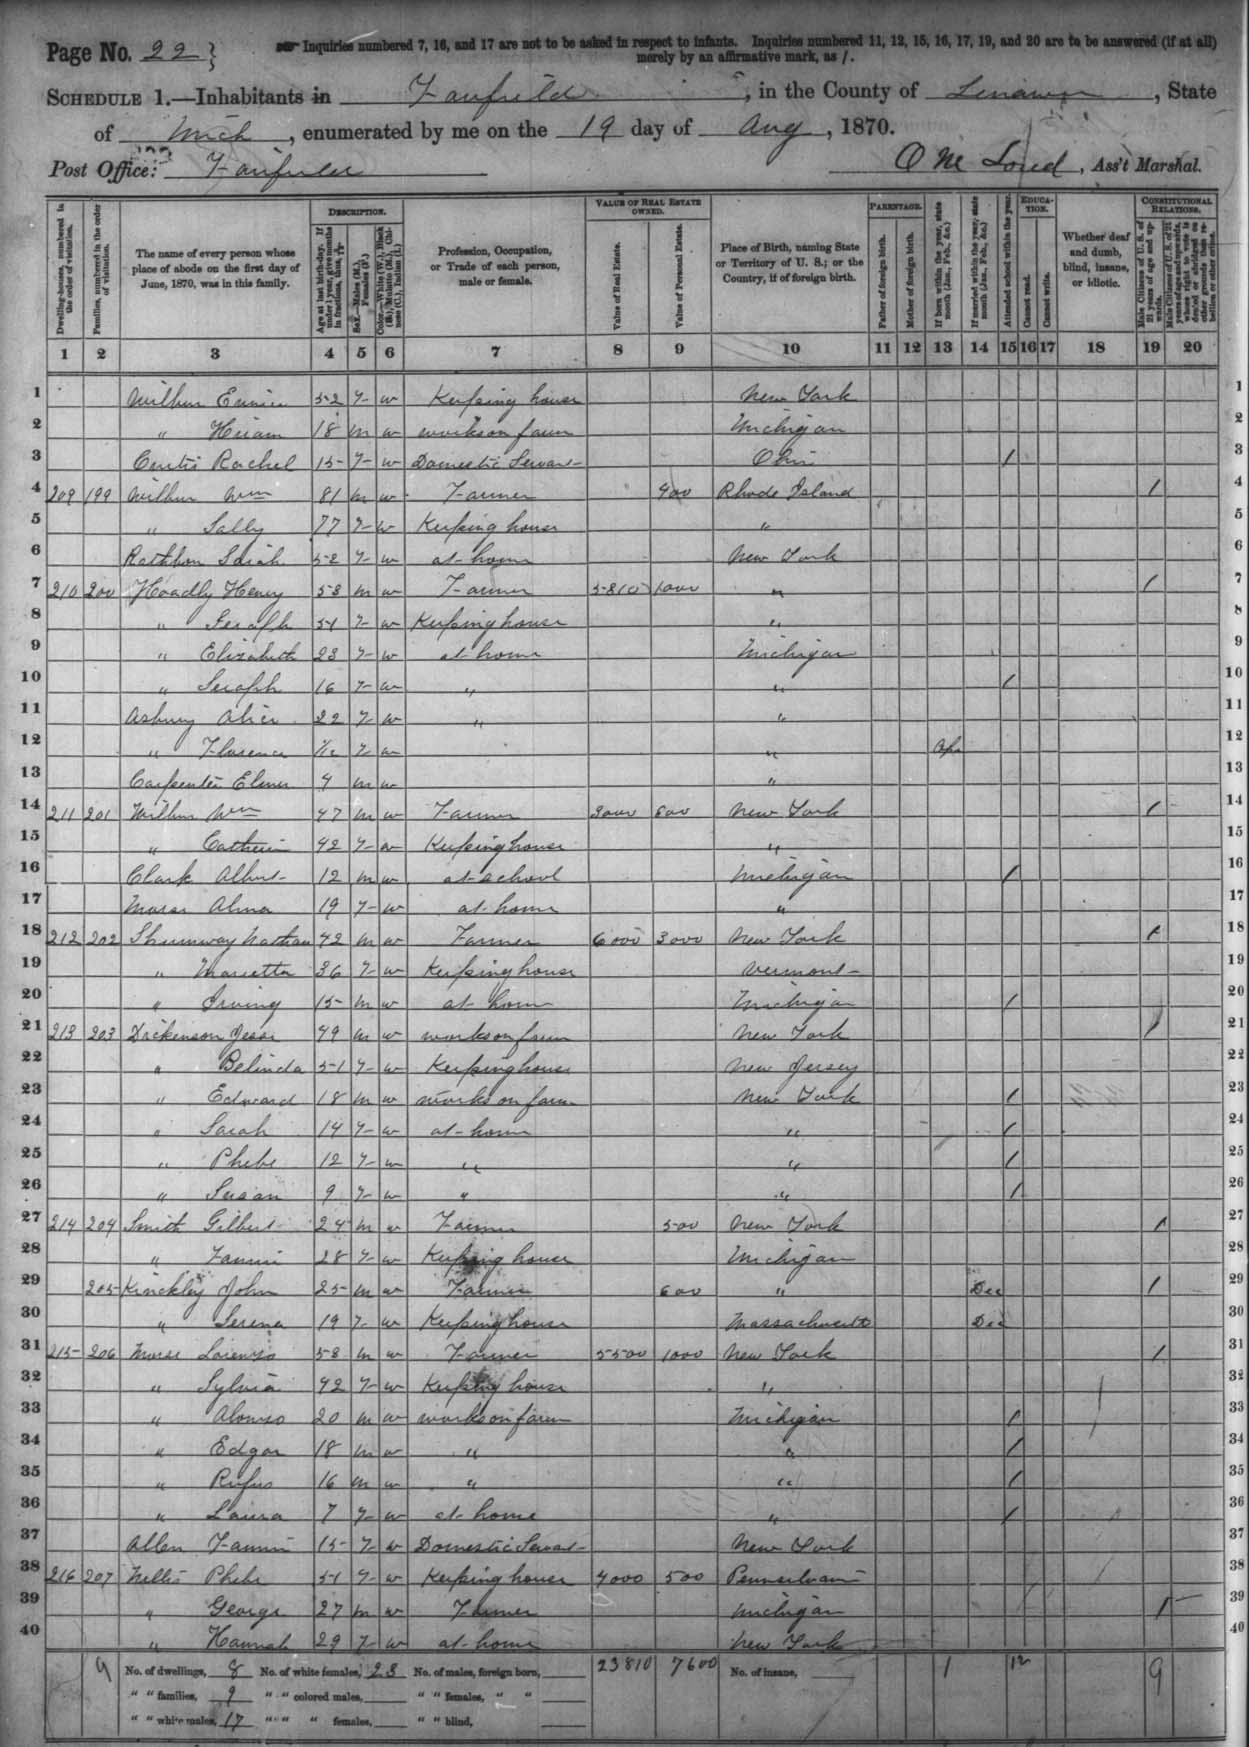 Page No. 22 } Inquiries numbered 7, 16, and 17 are not to be asked in respect to infants. Inquiries numbered 11, 12, 15, 16, 17, 19, and 20 are to be answered (if at all)
merely by an affirmative mark, as /.
SCHEDULE 1.—Inhabitants in Fairfield, in the County of Lenawee, State
of Mich, enumerated by me on the 19 day of Aug, 1870.
Post Office: Fairfield O M Loud, Ass't Marshal.
Dwelling-houses, numbered in the order of visitation.
Families, numbered in the order of visitation.
The name of every person whose place of abode on the first day of June, 1870, was in this family.
DESCRIPTION.
Age at last birth-day. If under 1 year, give months in fractions, thus, 3/12
Sex.—Males (M.), Females (F.)
Color.—White (W.), Black (B.), Mulatto (M.), Chinese (C.), Indian (I.)
Profession, Occupation, or Trade of each person, male or female.
VALUE OF REAL ESTATE OWNED.
Value of Real Estate.
Value of Personal Estate.
Place of Birth, naming State or Territory of U. S.; or the Country, if of foreign birth.
PARENTAGE.
Father of foreign birth.
Mother of foreign birth.
If born within the year, state month (Jan., Feb., &c.)
If married within the year, state month (Jan., Feb., &c.)
EDUCATION.
Attended school within the year.
Cannot read.
Cannot write.
Whether deaf and dumb, blind, insane, or idiotic.
CONSTITUTIONAL RELATIONS.
Male Citizens of U. S. of 21 years of age and upwards.
Male Citizens of U. S. of 21 years of age and upwards, whose right to vote is denied or abridged on other grounds than rebellion or other crime.
1 2 3 4 5 6 7 8 9 10 11 12 13 14 15 16 17 18 19 20
1 Wilbur Eunice 52 F W Keeping house New York 1
2 " Hiram 18 M W works on farm Michigan 2
3 Curtis Rachel 15 F W Domestic Servant Ohio / 3
4 209 199 Wilbur Wm 81 M W Farmer 400 Rhode Island / 4
5 " Sally 77 F W Keeping house " 5
6 Rathbon Sarah 52 F W at home New York 6
7 210 200 Hoadly Henry 53 M W Farmer 5810 1000 " / 7
8 " Seraph 51 F W Keeping house " 8
9 " Elizabeth 23 F W at home Michigan 9
10 " Seraph 16 F W " " / 10
11 Asbury Alice 22 F W " " 11
12 " Florence 1/12 F W " Ap 12
13 Carpenter Elmer 4 M W " 13
14 211 201 Wilbur Wm 47 M W Farmer 3000 600 New York / 14
15 " Catherin 42 F W Keeping house " 15
16 Clark Albert 12 M W at school Michigan / 16
17 Morse Alma 19 F W at home " 17
18 212 202 Shumway Nathan 42 M W Farmer 6000 3000 New York / 18
19 " Marietta 36 F W Keeping house Vermont 19
20 " Irving 15 M W at home Michigan / 20
21 213 203 Dickenson Jesse 49 M W works on farm New York / 21
22 " Belinda 51 F W Keeping house New Jersey 22
23 " Edward 18 M W works on farm New York / 23
24 " Sarah 14 F W at home " / 24
25 " Phebe 12 F W " " / 25
26 " Susan 9 F W " " / 26
27 214 204 Smith Gilbert 24 M W Farmer 500 New York / 27
28 " Fannie 28 F W Keeping house Michigan 28
29 205 Kinckley John 25 M W Farmer 600 " Dec / 29
30 " Serena 19 F W Keeping house Massachusetts Dec 30
31 215 206 Morse Lorenzo 53 M W Farmer 5500 1000 New York / 31
32 " Sylvia 42 F W Keeping house " 32
33 " Alonzo 20 M W works on farm Michigan / 33
34 " Edgar 18 M W " " / 34
35 " Rufus 16 M W " " / 35
36 " Laura 7 F W at home " / 36
37 Allen Fannie 15 F W Domestic Servant New York 37
38 216 207 Nellis Phebe 51 F W Keeping house 4000 500 Pennsylvani 38
39 " George 27 M W Farmer Michigan / 39
40 " Hannah 29 F W at home New York 40
9 No. of dwellings, 8 No. of white females, 23 No. of males, foreign born, 23810 7600 No. of insane, 1 12 9
" " families, 9 " " colored males, " " females, " "
" " white males, 17 " " " females, " " blind,